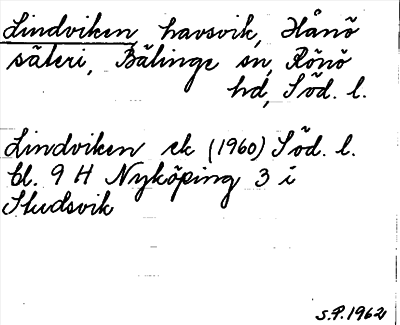 Lindviken, havsvik, Hånö
säteri, Bälinge sn, Rönö
hd, Söd. l.
Lindviken ek (1960) Söd. l.
bl. 9 H Nyköping 3 i
Studsvik
S.P. 1962